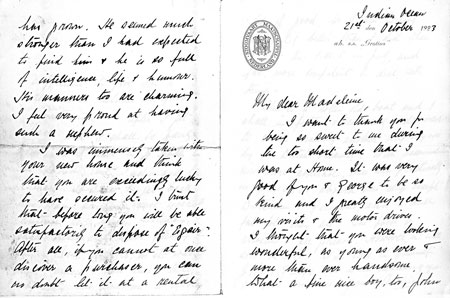 Indian Ocean
21st den October 1923
My dear Madeleine,
I want to thank you for
being so sweet to me during
the too short time that I
was at Home. It was very
good of you & George to be so
kind and I greatly enjoyed
my visits & the motor drive.
I thought that you were looking
wonderful, as young as ever &
more than ever handsome.
What a fine nice boy, too, John
has grown. He seemed much
stronger than I had expected
to find him & he is so full
of intelligence life & humour.
His manners too are charming.
I feel very proud at having
such a nephew.
I was immensely taken with
your new home and think
that you are exceedingly lucky
to have secured it. I trust
that before long you will be able
satisfactorily to dispose of
After all, if you cannot at once
discover a purchaser, you can
no doubt let it at a rental